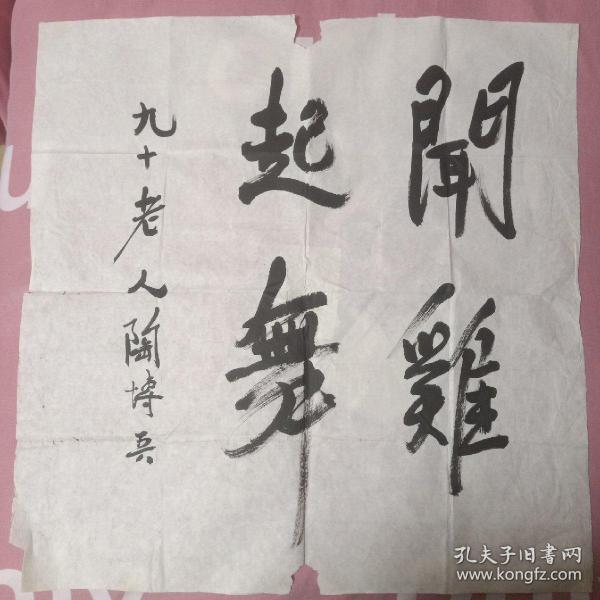 聞雞
起舞
九十老人陶博吾
孔夫子旧書网
www.kongfz.com